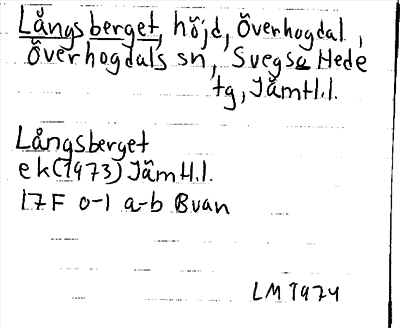 Långsberget, höjd, Överhogdal,
Överhogdals sn, Svegs o Hede
tg, Jämtl.l.
Långsberget
ek (1973) Jämtl.l.
17F 0-1 a-b Bvan
LM 1974